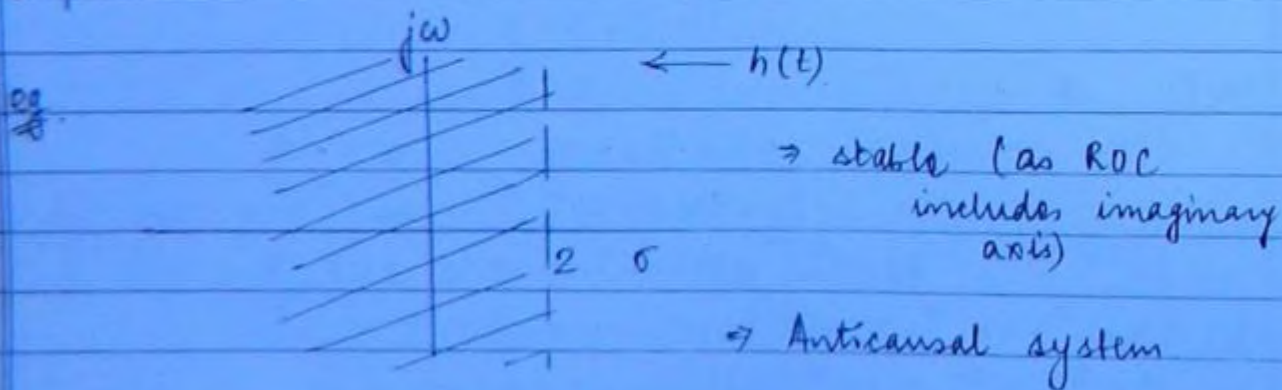 jω
← h(t)
eg
⇒ stable (as ROC
includes imaginary
axis)
2 σ
⇒ Anticausal system